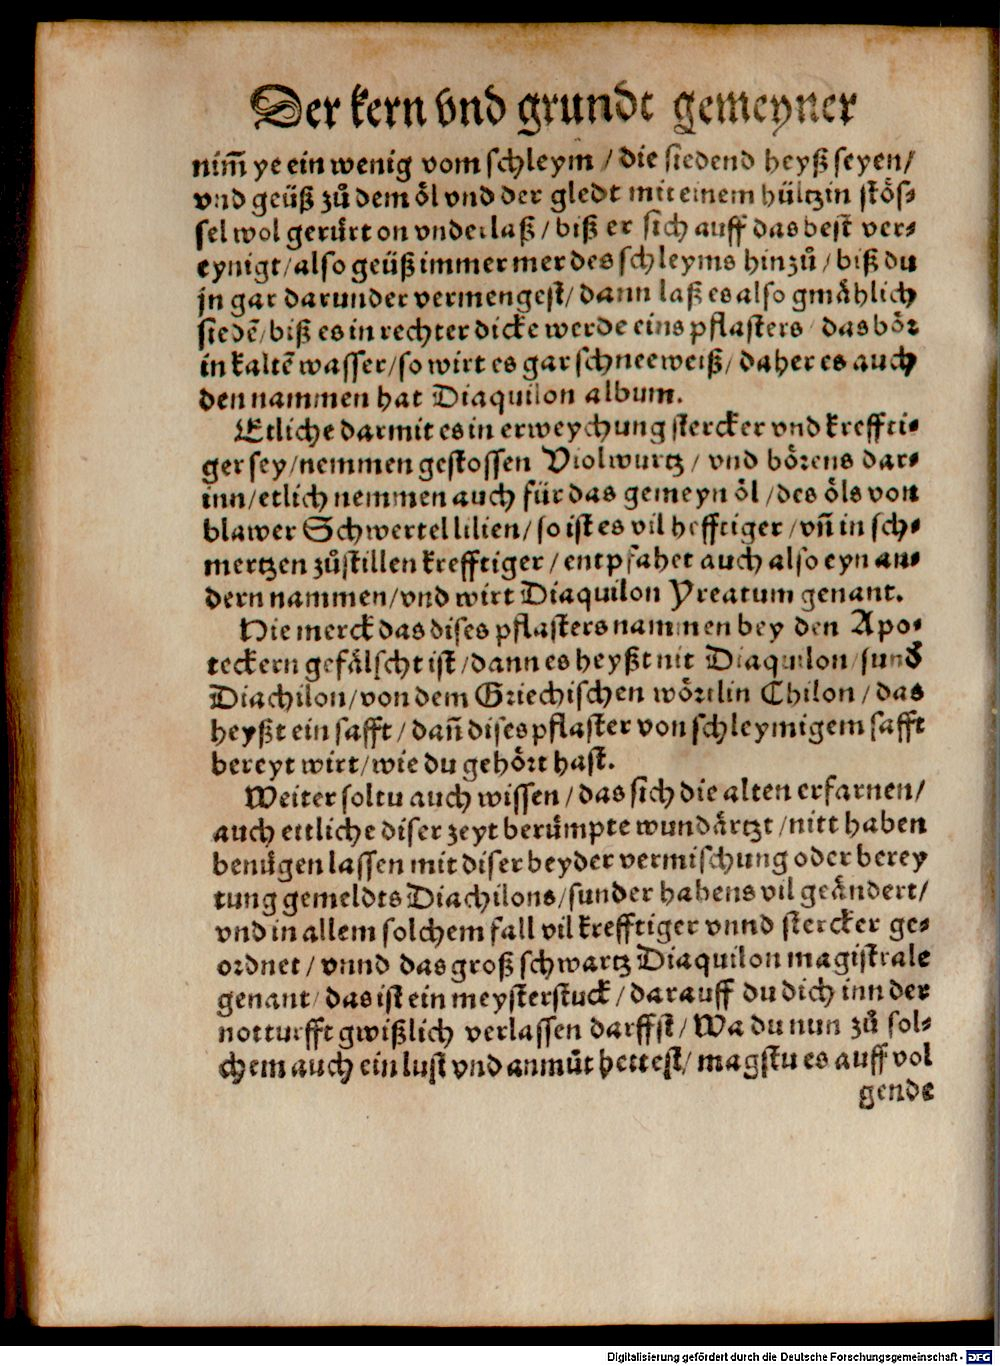 Der kern vnd grundt gemeyner
nim̄ ye ein wenig vom schleym / die siedend heyß seyen/
vnd geüß zů dem öl vnd der gledt mit einem hültzin stös⸗
sel wol gerürt on vnderlaß / biß er sich auff das best ver⸗
eynigt/also geüß immer mer des schleyms hinzů / biß du
jn gar darunder vermengest/ dann laß es also gmählich
siedē/biß es in rechter dicke werde eins pflasters / das bör
in kaltē wasser/so wirt es gar schneeweiß/ daher es auch
den nammen hat Diaquilon album.
Etliche darmit es in erweychung stercker vnd kreffti⸗
ger sey/nemmen gestossen Violwurtz / vnd börens dar⸗
inn/etlich nemmen auch für das gemeyn öl /des öls von
blawer Schwertel lilien/ so ist es vil hefftiger /vn̄ in sch⸗
mertzen zůstillen krefftiger / entpfahet auch also eyn an⸗
dern nammen/vnd wirt Diaquilon Yreatum genant.
Hie merck das dises pflasters nammen bey den Apo⸗
teckern gefälscht ist /dann es heyßt nit Diaquilon /sund
Diachilon/von dem Griechischen wörtlin Chilon / das
heyßt ein safft / dan̄ dises pflaster von schleymigem safft
bereyt wirt/wie du gehört hast.
Weiter soltu auch wissen /das sich die alten erfarnen/
auch ettliche diser zeyt berümpte wundärtzt /nitt haben
benügen lassen mit diser beyder vermischung oder berey
tung gemeldts Diachilons/sunder habens vil geändert/
vnd in allem solchem fall vil krefftiger vnnd stercker ge⸗
ordnet / vnnd das groß schwartz Diaquilon magistrale
genant/ das ist ein meysterstuck / darauff du dich inn der
notturfft gwißlich verlassen darffst / Wa du nun zů sol⸗
chem auch ein lust vnd anmůt hettest/ magstu es auff vol
gende
Digitalisierung gefördert durch die Deutsche Forschungsgemeinschaft - DFG